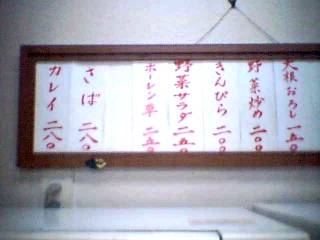 大根おろし 一五〇
野菜炒め 二〇〇
きんぴら 二〇〇
野菜サラダ 二五〇
ホーレン草 二五〇
さば 二八〇
カレイ 二八〇